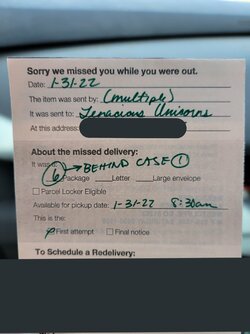 Sorry we missed you while you were out.
Date: 1-31-22
The item was sent by: (multiple)
It was sent to: Tenacious Unicorns
At this address:
About the missed delivery:
It was a:
6 → BEHIND CASE 1
Package Letter Large envelope
Parcel Locker Eligible
Available for pickup date: 1-31-22 8:30am
This is the:
First attempt Final notice
To Schedule a Redelivery: